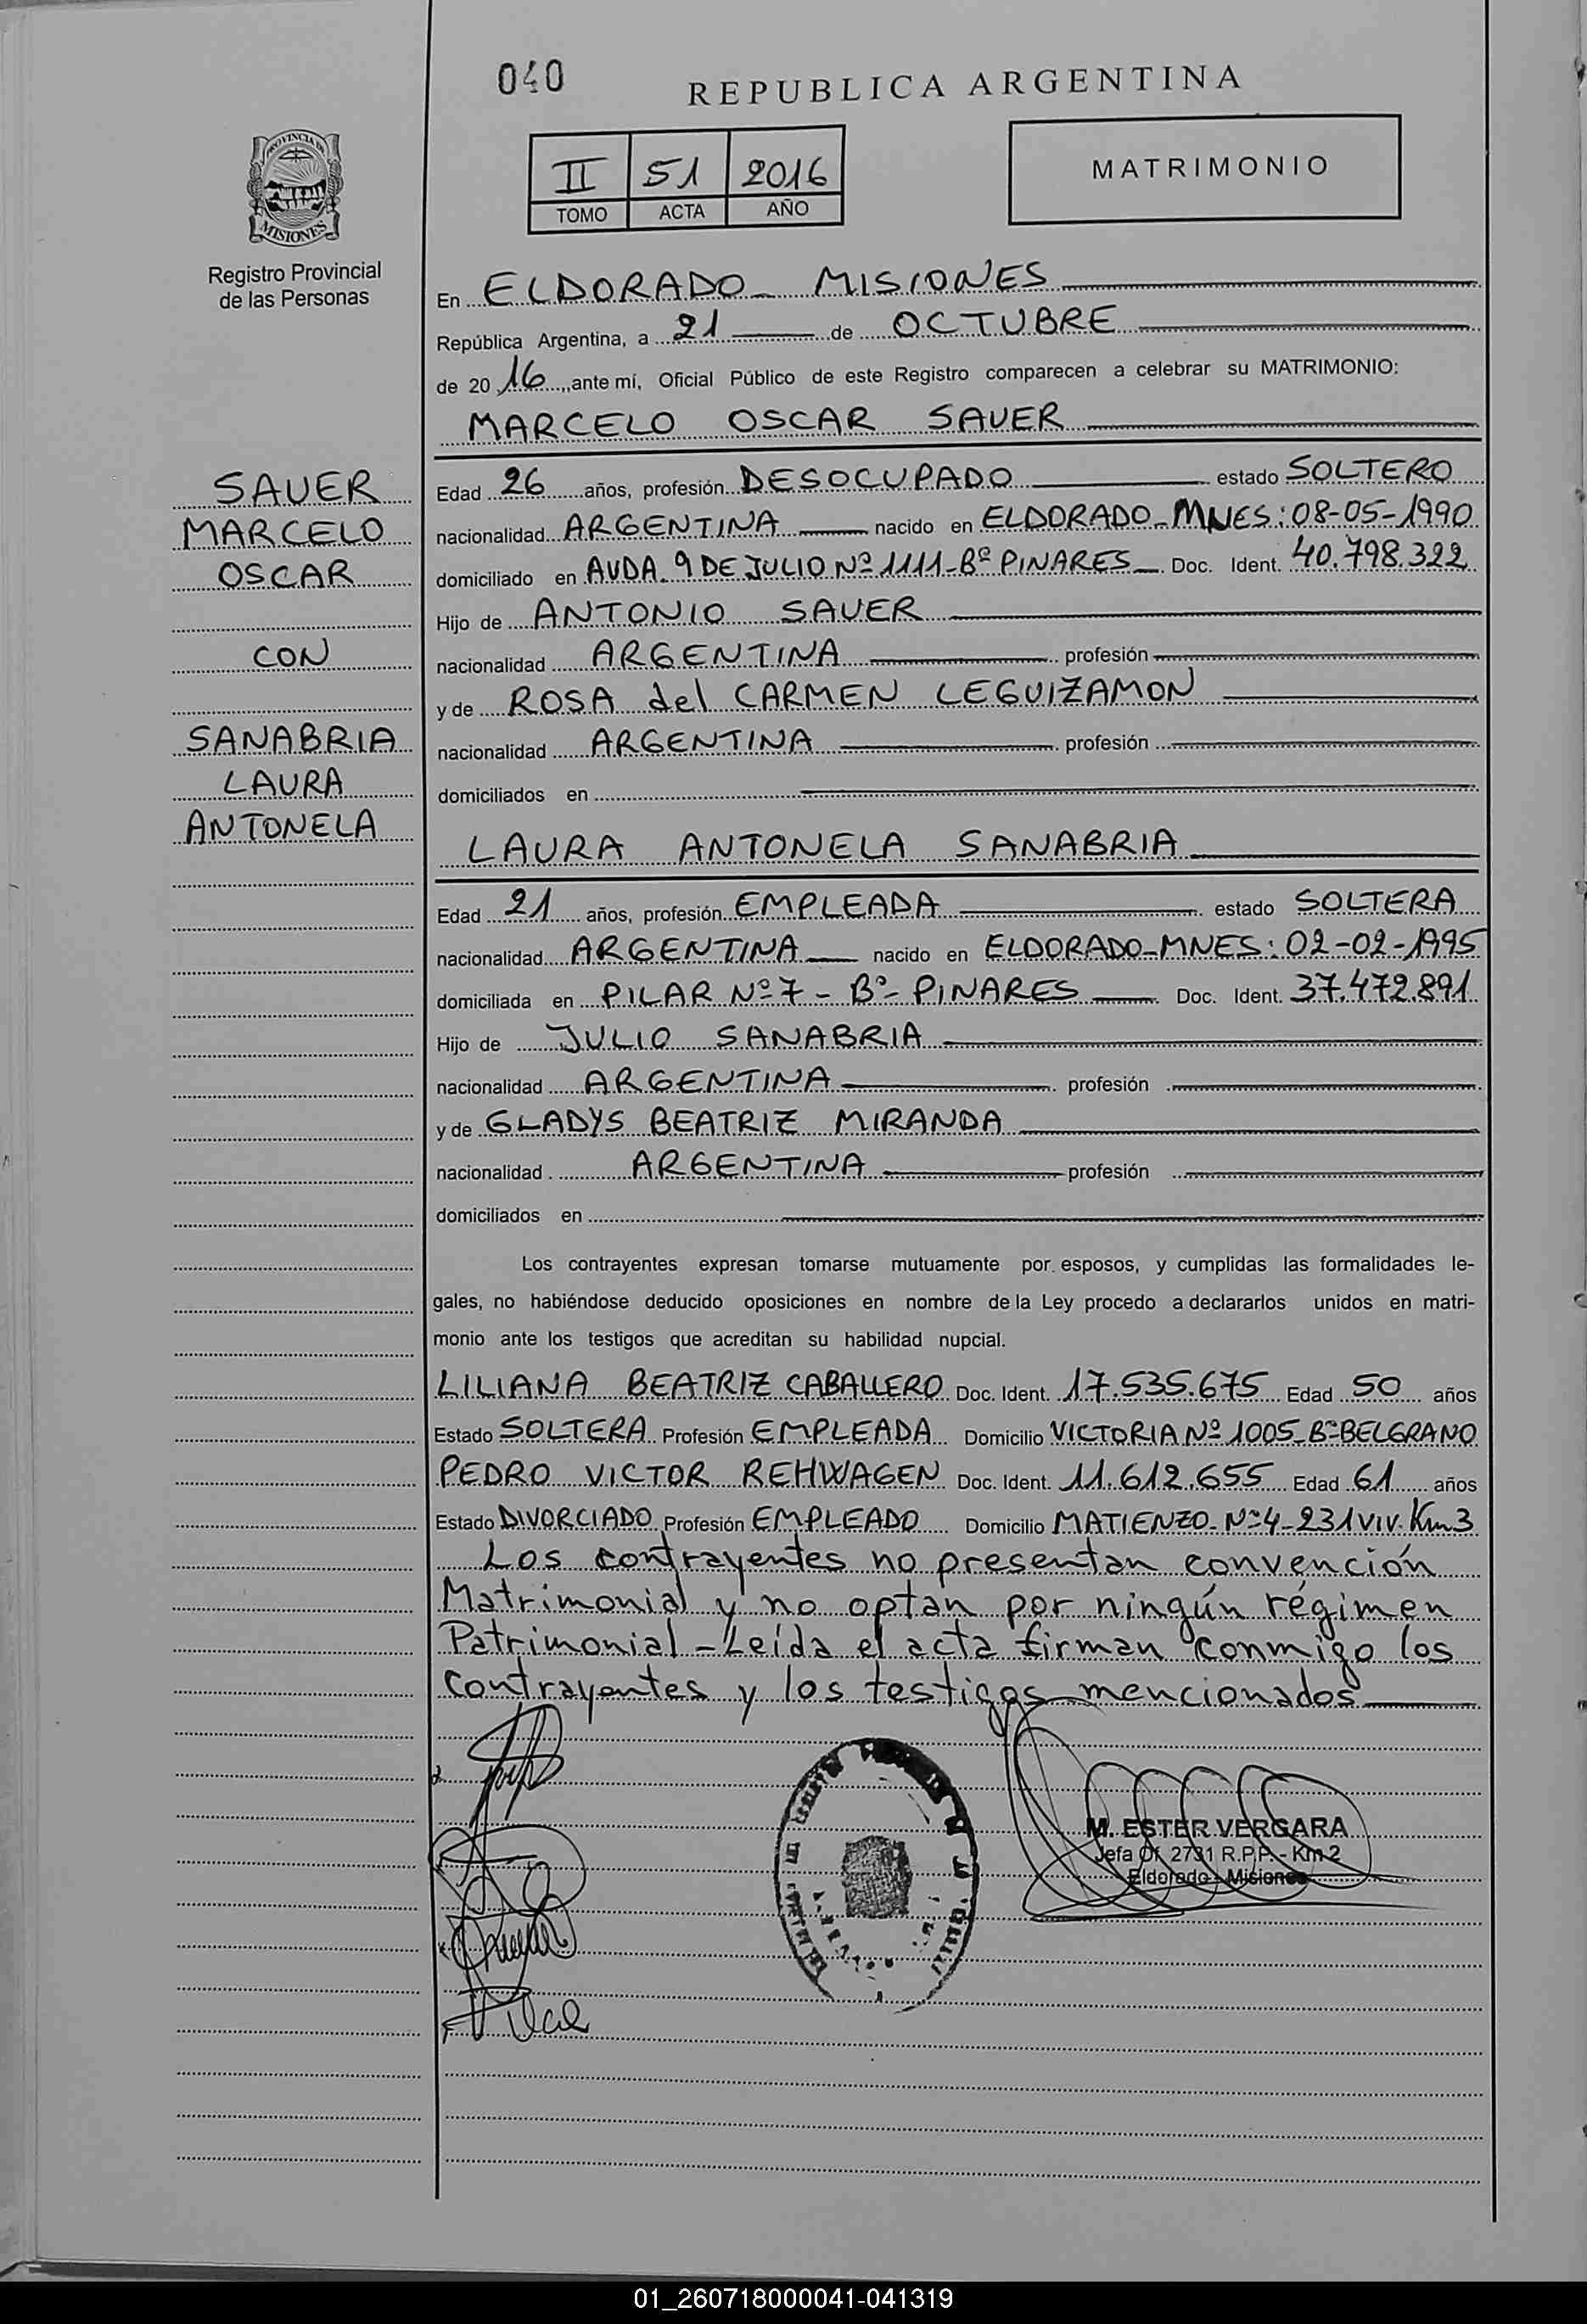 040
REPUBLICA ARGENTINA
PROVINCIA DE
MISIONES
II 51 2016
TOMO ACTA AÑO
MATRIMONIO
Registro Provincial
de las Personas
En ELDORADO - MISIONES
República Argentina, a 21 de OCTUBRE
de 20 16 ante mí, Oficial Público de este Registro comparecen a celebrar su MATRIMONIO:
MARCELO OSCAR SAUER
SAUER
MARCELO
OSCAR
CON
SANABRIA
LAURA
ANTONELA
Edad 26 años, profesión DESOCUPADO estado SOLTERO
nacionalidad ARGENTINA nacido en ELDORADO-MNES: 08-05-1990
domiciliado en AVDA. 9 DE JULIO Nº 1111-Bº PINARES Doc. Ident. 40.798.322
Hijo de ANTONIO SAUER
nacionalidad ARGENTINA profesión
y de ROSA del CARMEN LEGUIZAMON
nacionalidad ARGENTINA profesión
domiciliados en
LAURA ANTONELA SANABRIA
Edad 21 años, profesión EMPLEADA estado SOLTERA
nacionalidad ARGENTINA nacido en ELDORADO-MNES: 02-02-1995
domiciliada en PILAR Nº 7 - Bº- PINARES Doc. Ident. 37.472.891
Hijo de JULIO SANABRIA
nacionalidad ARGENTINA profesión
y de GLADYS BEATRIZ MIRANDA
nacionalidad ARGENTINA profesión
domiciliados en
Los contrayentes expresan tomarse mutuamente por esposos, y cumplidas las formalidades le-
gales, no habiéndose deducido oposiciones en nombre de la Ley procedo a declararlos unidos en matri-
monio ante los testigos que acreditan su habilidad nupcial.
LILIANA BEATRIZ CABALLERO Doc. Ident. 17.535.675 Edad 50 años
Estado SOLTERA Profesión EMPLEADA Domicilio VICTORIA Nº 1005-Bº BELGRANO
PEDRO VICTOR REHWAGEN Doc. Ident. 11.612.655 Edad 61 años
Estado DIVORCIADO Profesión EMPLEADO Domicilio MATIENZO - Nº 4 - 231 VIV. Km 3
Los contrayentes no presentan convención
Matrimonial y no optan por ningún régimen
Patrimonial - Leída el acta firman conmigo los
contrayentes y los testigos mencionados
M. ESTER VERGARA
Jefa Of. 2731 R.P.P. - Km 2
Eldorado - Misiones
01_260718000041-041319